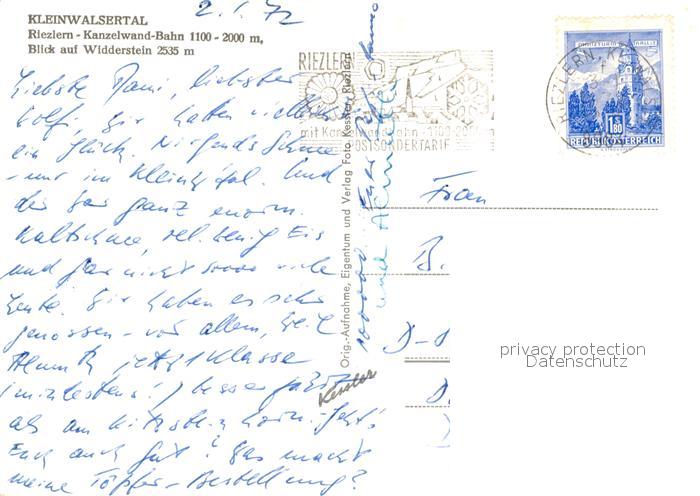 2.1.72
KLEINWALSERTAL
Riezlern - Kanzelwand-Bahn 1100 - 2000 m,
Blick auf Widderstein 2535 m
Liebste Mami, liebster
Wolfi, wir haben
ein Glück. Nirgends Schnee
- nur im Kleinw.tal. Und
da gar ganz enorm.
Kaltschnee, rel. wenig Eis
und gar nicht soooo viele
Leute. Wir haben es sehr
genossen - vor allem, weil
jetzt 1 Klasse
(mindestens!) besser fährt
als am Kitzb. Horn. - Geht's
Euch auch gut? Was macht
meine Töpfer-Bestellung?
1000000 Eure
und
Orig.-Aufnahme, Eigentum und Verlag Foto Kessler, Riezlern
Kessler
RIEZLERN
mit Kanzelwandbahn - 1100-2000m
POSTSONDERTARIF
RIEZLERN, KL
1.80
REPUBLIK ÖSTERREICH
Frau
B.
D-
D.
privacy protection
Datenschutz